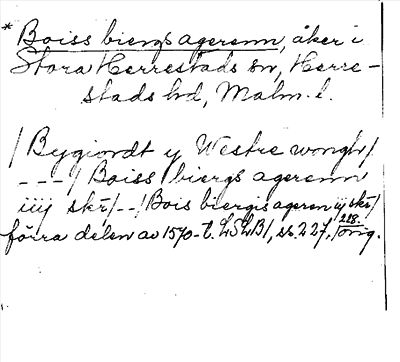 * Boiss biergs agerenn, åker i
Stora Herrestads sn, Herre-
stads hd, Malm. l.
/ Bygiondt y Westre wongh /
---/ Boiss biergs agerenn
iiij skr/--/ Bois biergis ageren ij skr/
förra delen av 1570-t. LSLB1, ss. 227, 228. / orig.